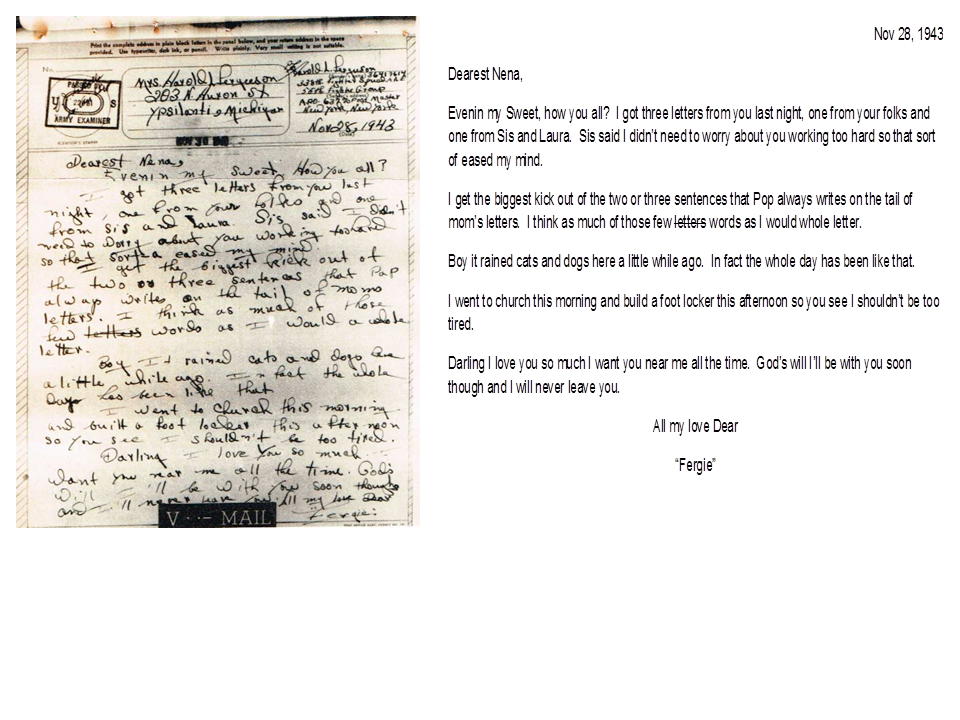 Print the complete address in plain block letters in the panel below, and your return address in the space
provided. Use typewriter, dark ink, or pencil. Write plainly. Very small writing is not suitable.
No.
PASSED BY
U S
ARMY EXAMINER
Mrs. Harold L. Ferguson
203 N. Huron St
Ypsilanti, Michigan
Harold L. Ferguson
Fighter Group
New York, New York
Nov 28, 1943
Dearest Nena,
Evenin my Sweet, How you all?
I got three letters from you last
night, one from your folks and one
from Sis and Laura. Sis said I didn't
need to worry about you working too hard
so that sorta eased my mind.
I get the biggest kick out of
the two or three sentences that Pap
always writes on the tail of moms
letters. I think as much of those
few letters words as I would a whole
letter.
Boy It rained cats and dogs here
a little while ago. In fact the whole
day has been like that
I went to church this morning
and built a foot locker this afternoon
so you see I shouldn't be too tired.
Darling I love you so much I
want you near me all the time. God's
will I'll be with you soon though
and I'll never leave you. All my love Dear
"Fergie"
V - MAIL
Nov 28, 1943
Dearest Nena,
Evenin my Sweet, how you all? I got three letters from you last night, one from your folks and
one from Sis and Laura. Sis said I didn't need to worry about you working too hard so that sort
of eased my mind.
I get the biggest kick out of the two or three sentences that Pop always writes on the tail of
mom's letters. I think as much of those few letters words as I would whole letter.
Boy it rained cats and dogs here a little while ago. In fact the whole day has been like that.
I went to church this morning and build a foot locker this afternoon so you see I shouldn't be too
tired.
Darling I love you so much I want you near me all the time. God's will I'll be with you soon
though and I will never leave you.
All my love Dear
"Fergie"